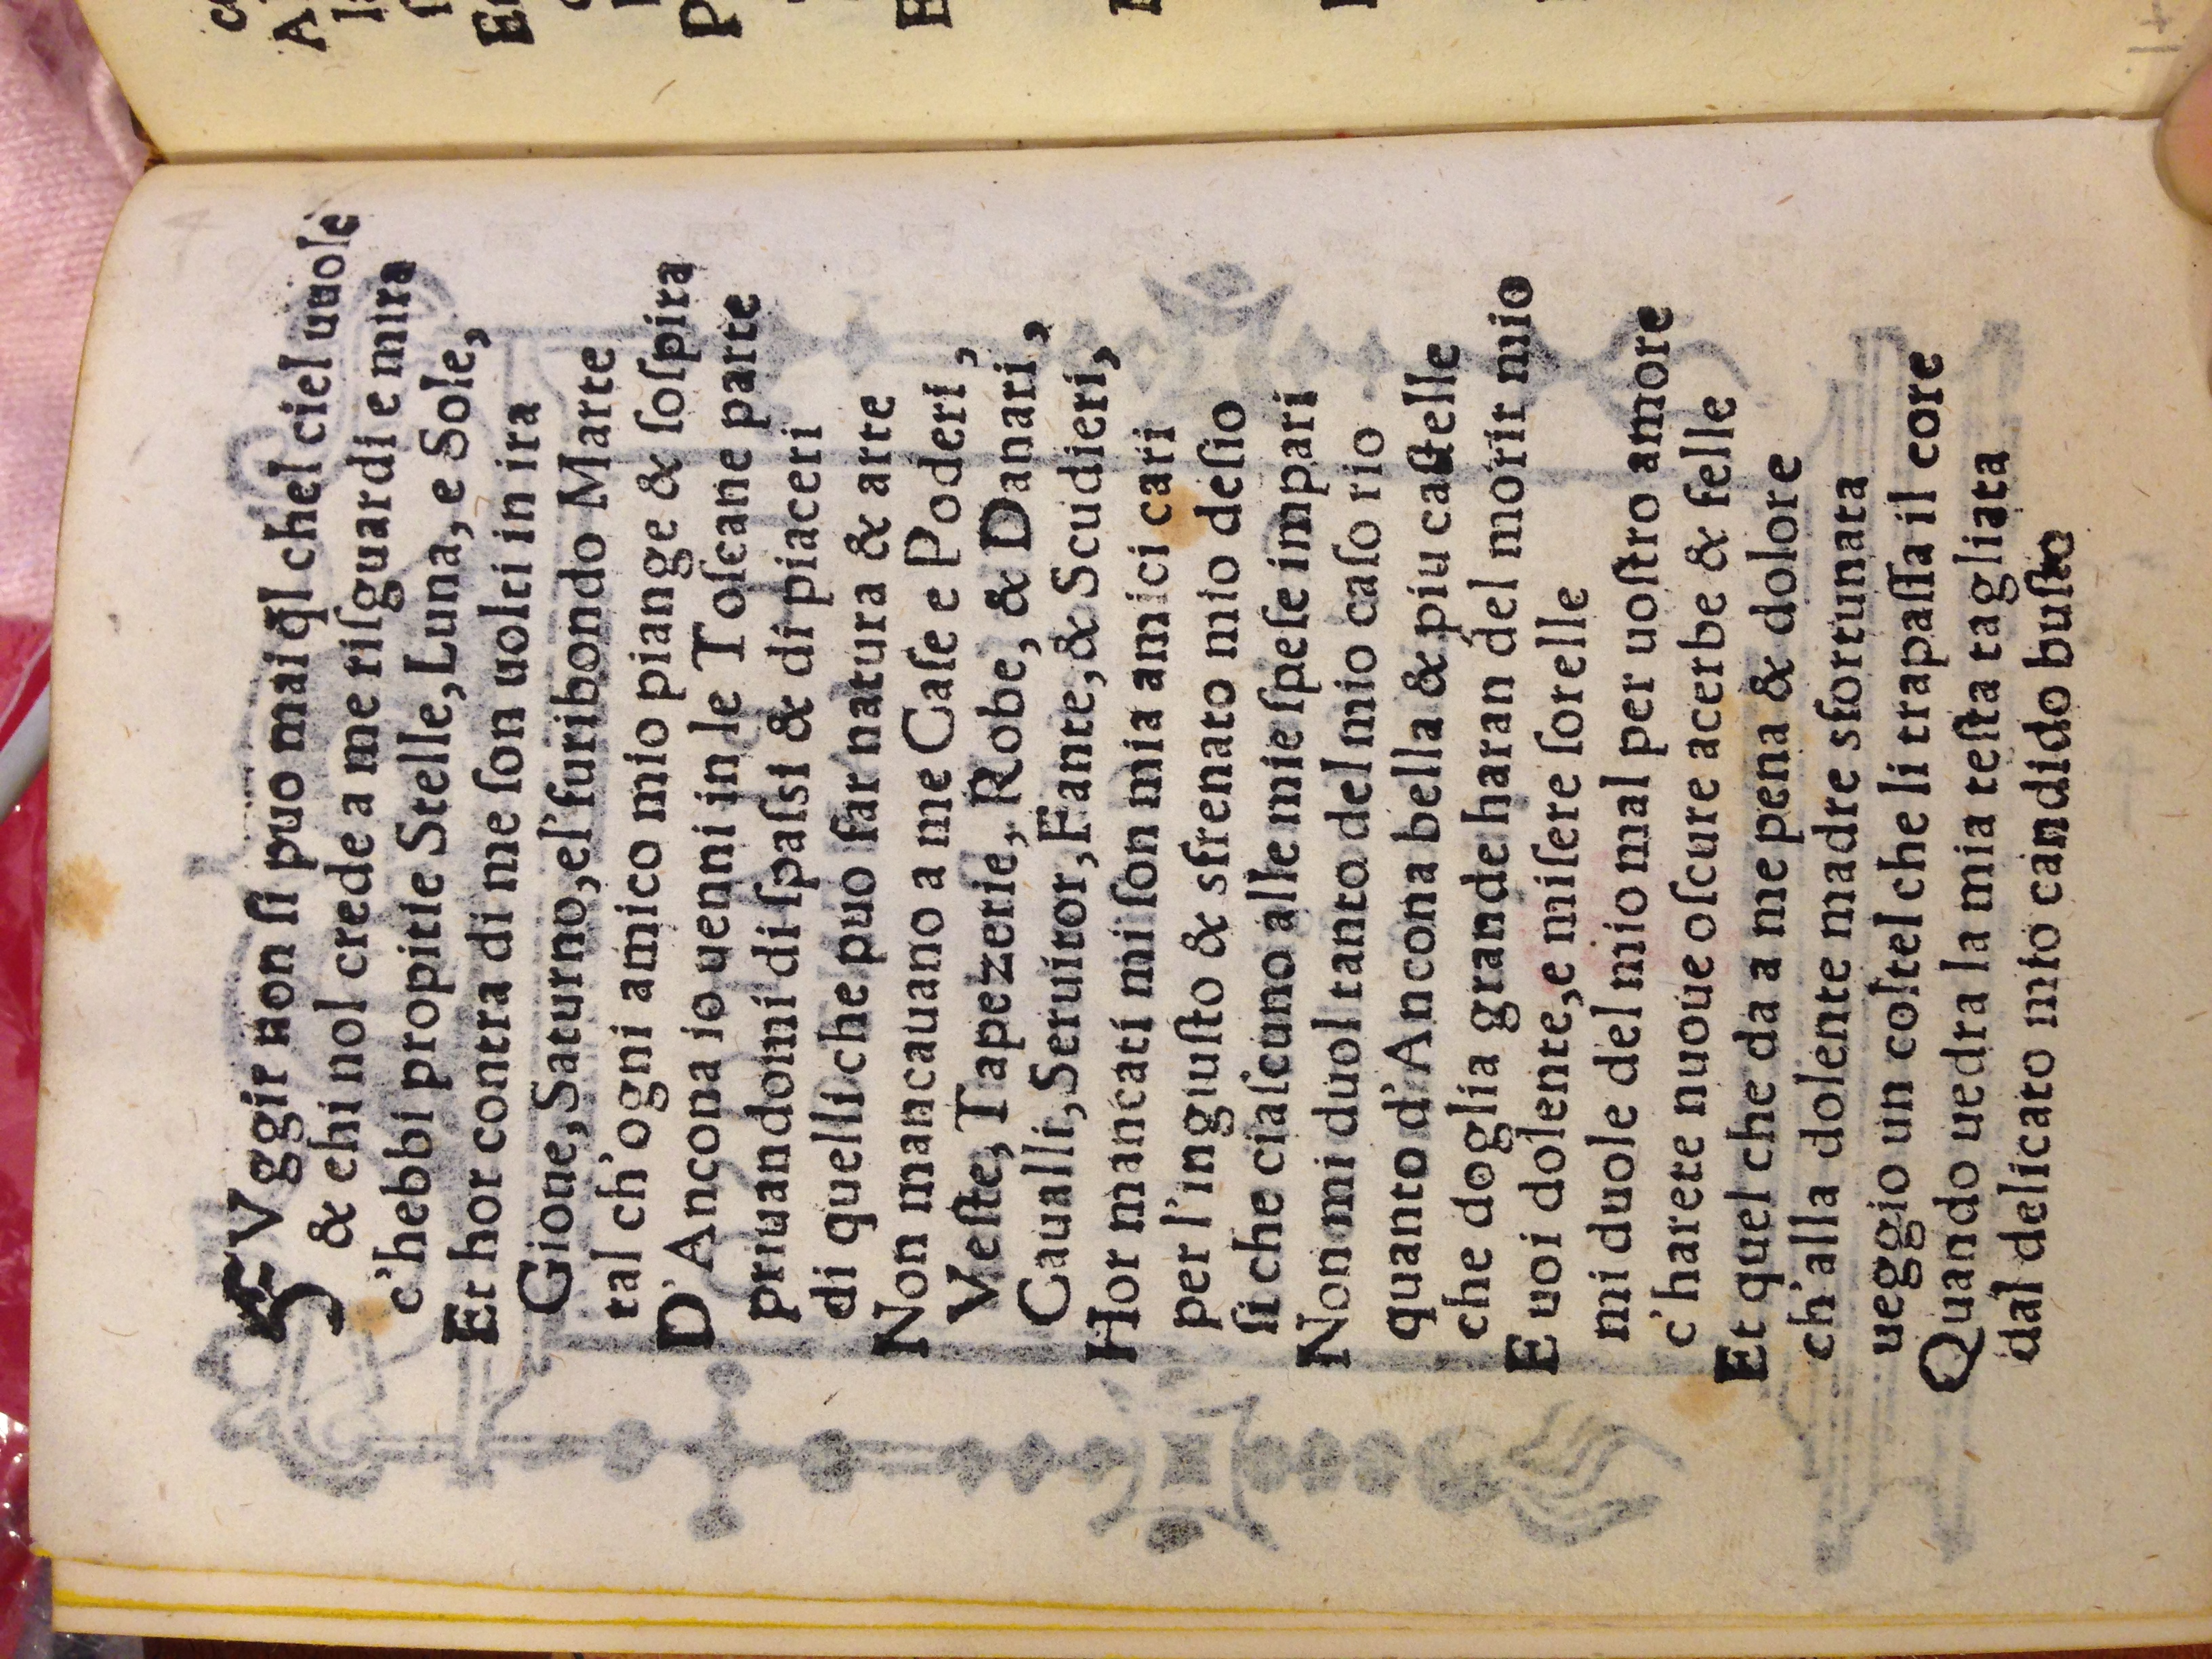 FVggir non ſi puo mai ql̄ chel ciel uuole
& chi nol crede a me riſguardi e mira
c'hebbi propitie Stelle, Luna, e Sole,
Et hor contra di me ſon uolti in ira
Gioue, Saturno, el' furibondo Marte
tal ch'ogni amico mio piange & ſoſpira
D'Ancona io uenni in le Toſcane parte
priuandomi di ſpaſsi & di piaceri
di quelli che puo far natura & arte
Non mancauano a me Caſe e Poderi,
Veſte, Tapezerie, Robe, & Danari,
Caualli, Seruitor, Fante, & Scudieri,
Hor mancati mi ſon mia amici cari
per l'inguſto & sfrenato mio deſio
ſi che ciaſcuno alle mie ſpeſe impari
Non mi duol tanto del mio caſo rio
quanto d'Ancona bella & piu caſtelle
che doglia grande haran del morir mio
E uoi dolente, e miſere ſorelle
mi duole del mio mal per uoſtro amore
c'harete nuoue oſcure acerbe & felle
Et quel che da a me pena & dolore
ch'alla dolente madre sfortunata
ueggio un coltel che li trapaſſa il core
Quando uedra la mia teſta tagliata
dal delicato mio candido buſto